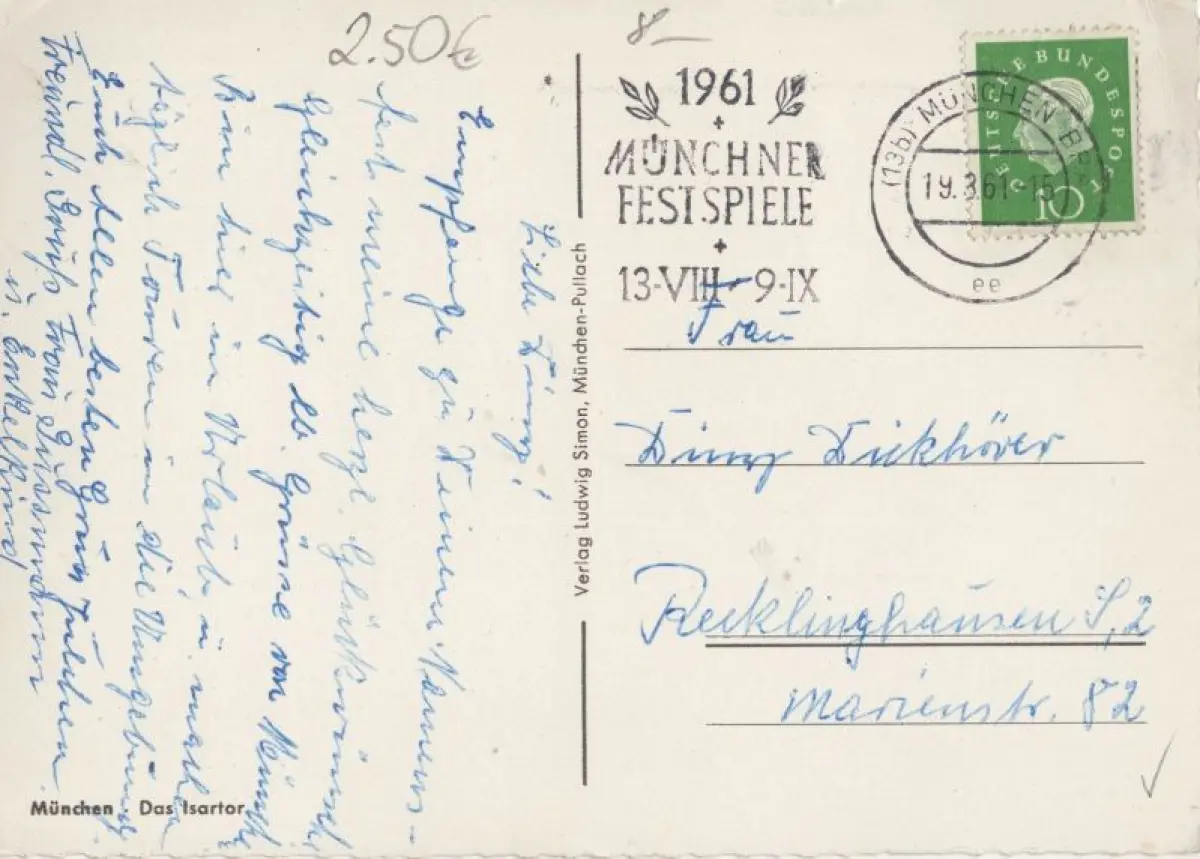 2.50€
8-
1961
MÜNCHNER
FESTSPIELE
13-VIII-9-IX
(13b) MÜNCHEN
19.3.61-15
ee
DEUTSCHE BUNDESPOST
10
Liebe
Empfange zu Deinem Namens-
fest meine herzl. Glückwünsche
Gleichzeitig lb. Grüsse von Münch
Bin hier in Urlaub, u. mache
täglich Touren in die Umgebung
Euch Allen besten Gruß
Freundl. Gruß Frau
u. Enkelkind
München · Das Isartor
Verlag Ludwig Simon, München-Pullach
Frau
Dickhöver
Recklinghausen S, 2
Marienstr. 82